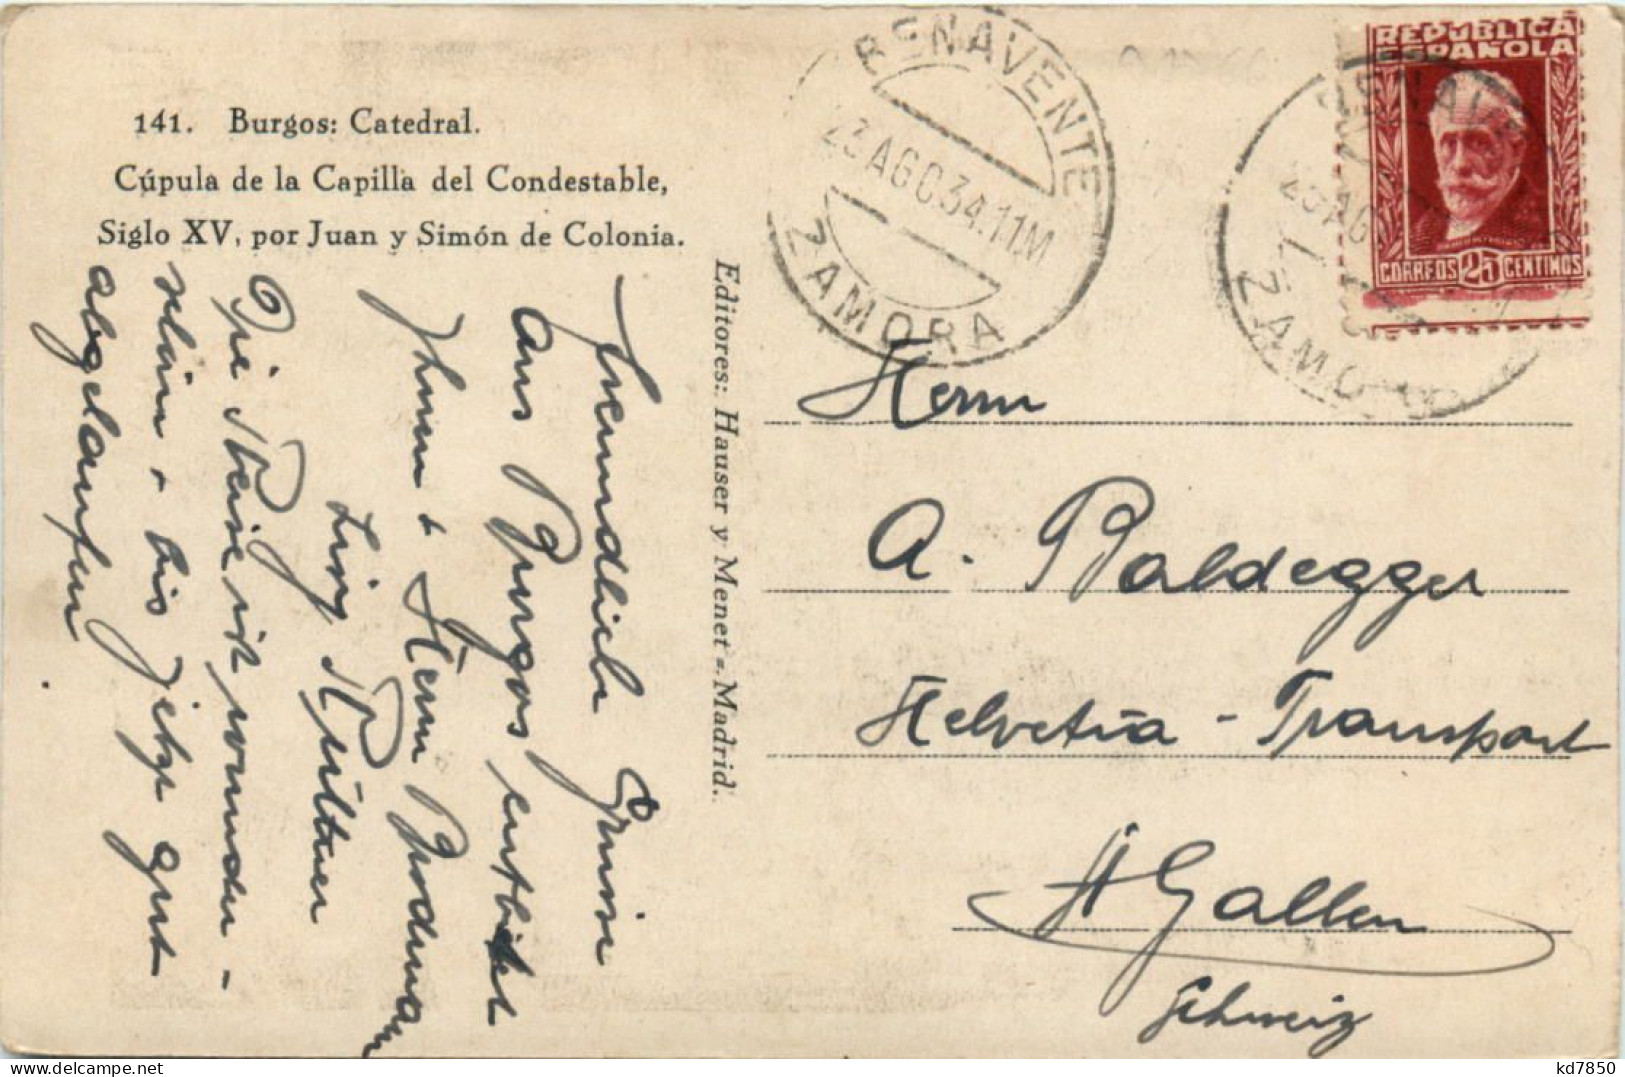 141. Burgos: Catedral.
Cúpula de la Capilla del Condestable,
Siglo XV, por Juan y Simón de Colonia.
Editores: Hauser y Menet.-Madrid.
BENAVENTE
23 AGO 34. 11M
ZAMORA
REPUBLICA
ESPAÑOLA
CORREOS 25 CENTIMOS
BENAVENTE
ZAMORA
Freundliche Grüsse
aus Burgos entbietet
Ihnen & Herrn Brodmann
Die Reise ist wunder-
schön & bis jetzt gut
abgelaufen.
Herrn
A. Baldegger
Helvetia-Transport
St Gallen
Schweiz
kd7850